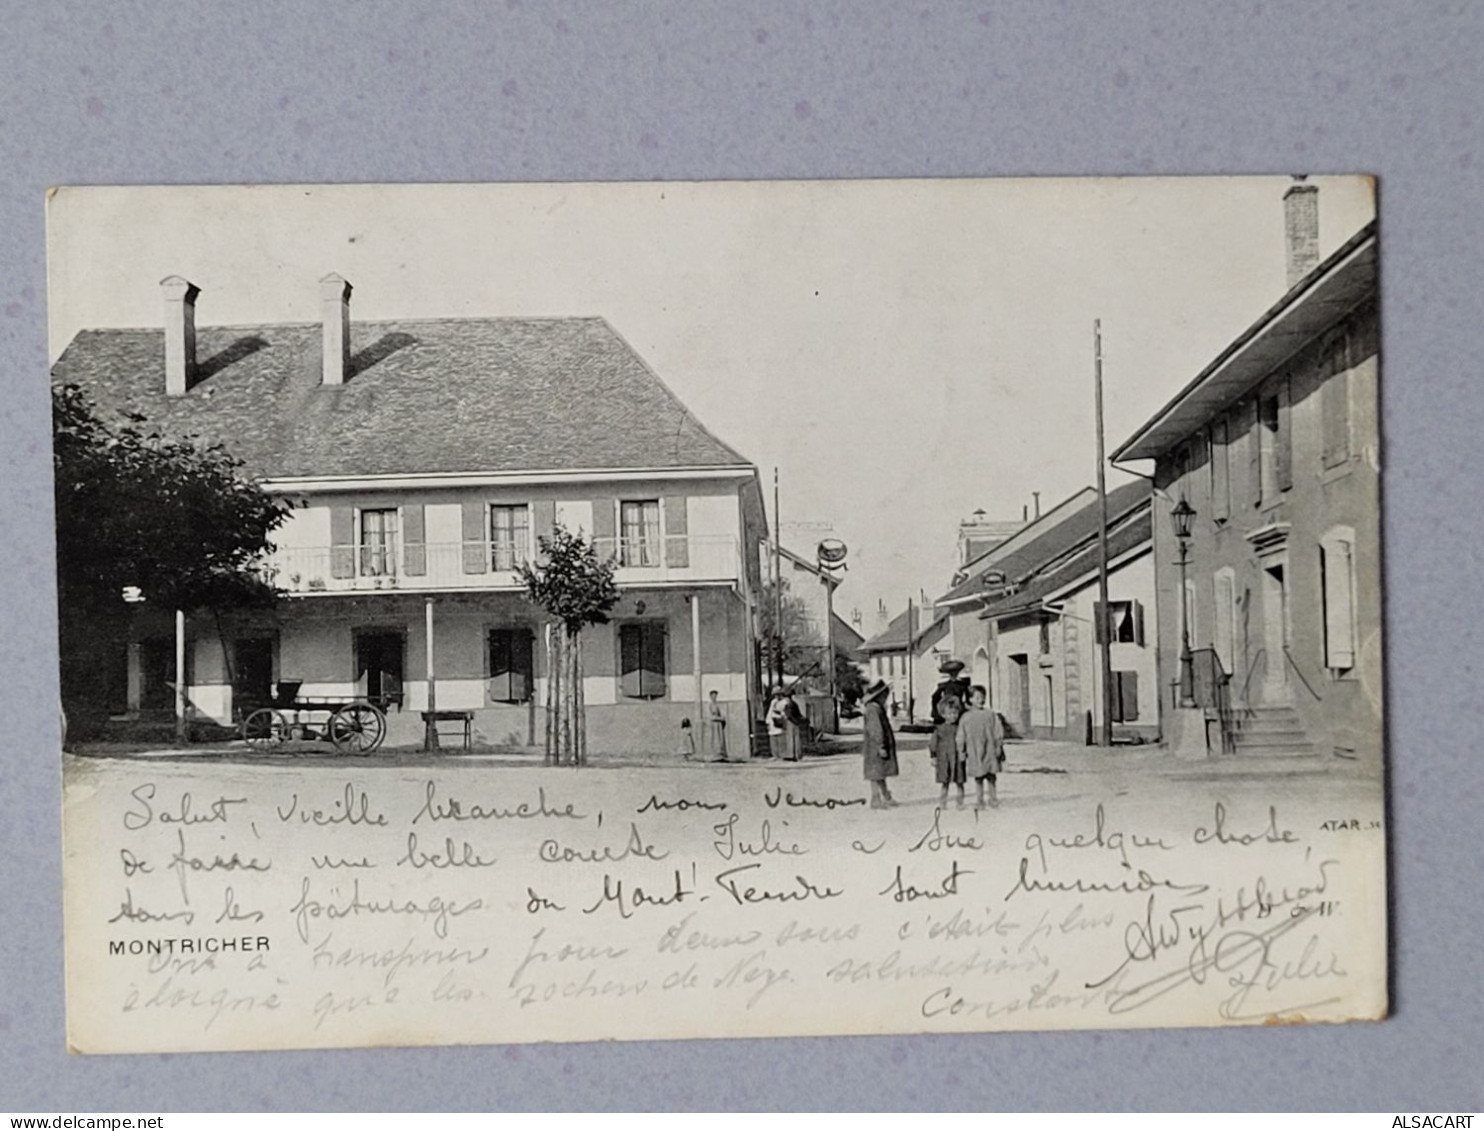 Salut, vieille branche, nous venons
de faire une belle course Julie a sué quelque chose,
ATAR
tous les pâturages du Mont-Tendre sont humides
MONTRICHER
On a transpiré pour deux sous c'était plus
éloigné que les rochers de Naye. salutations
Constant Julie
ALSACART